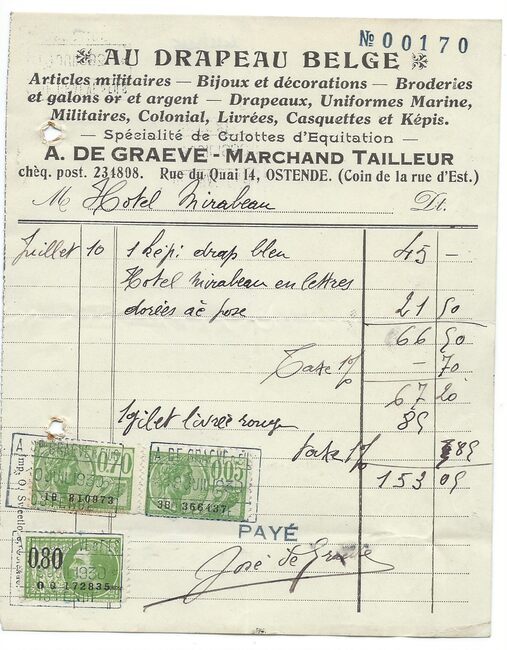 № 00170
AU DRAPEAU BELGE
Articles militaires — Bijoux et décorations — Broderies
et galons or et argent — Drapeaux, Uniformes Marine,
Militaires, Colonial, Livrées, Casquettes et Képis.
— Spécialité de Culottes d'Equitation —
A. DE GRAEVE - MARCHAND TAILLEUR
chèq. post. 231808. Rue du Quai 14, OSTENDE. (Coin de la rue d'Est.)
M Hotel Mirabeau Dt.
Juillet 10 1 képi drap bleu 45 —
Hotel Mirabeau en lettres
dorées pose 21 50
66 50
Taxe 1% — 70
67 20
1 gilet livrée rouge 85
taxe 1% 85
153 05
A. DE GRAEVE
0,70
1930
1B 810873
A. DE GRAEVE
0,05
1930
3B 366437
PAYÉ
0,80
1930
172835
José de Graeve